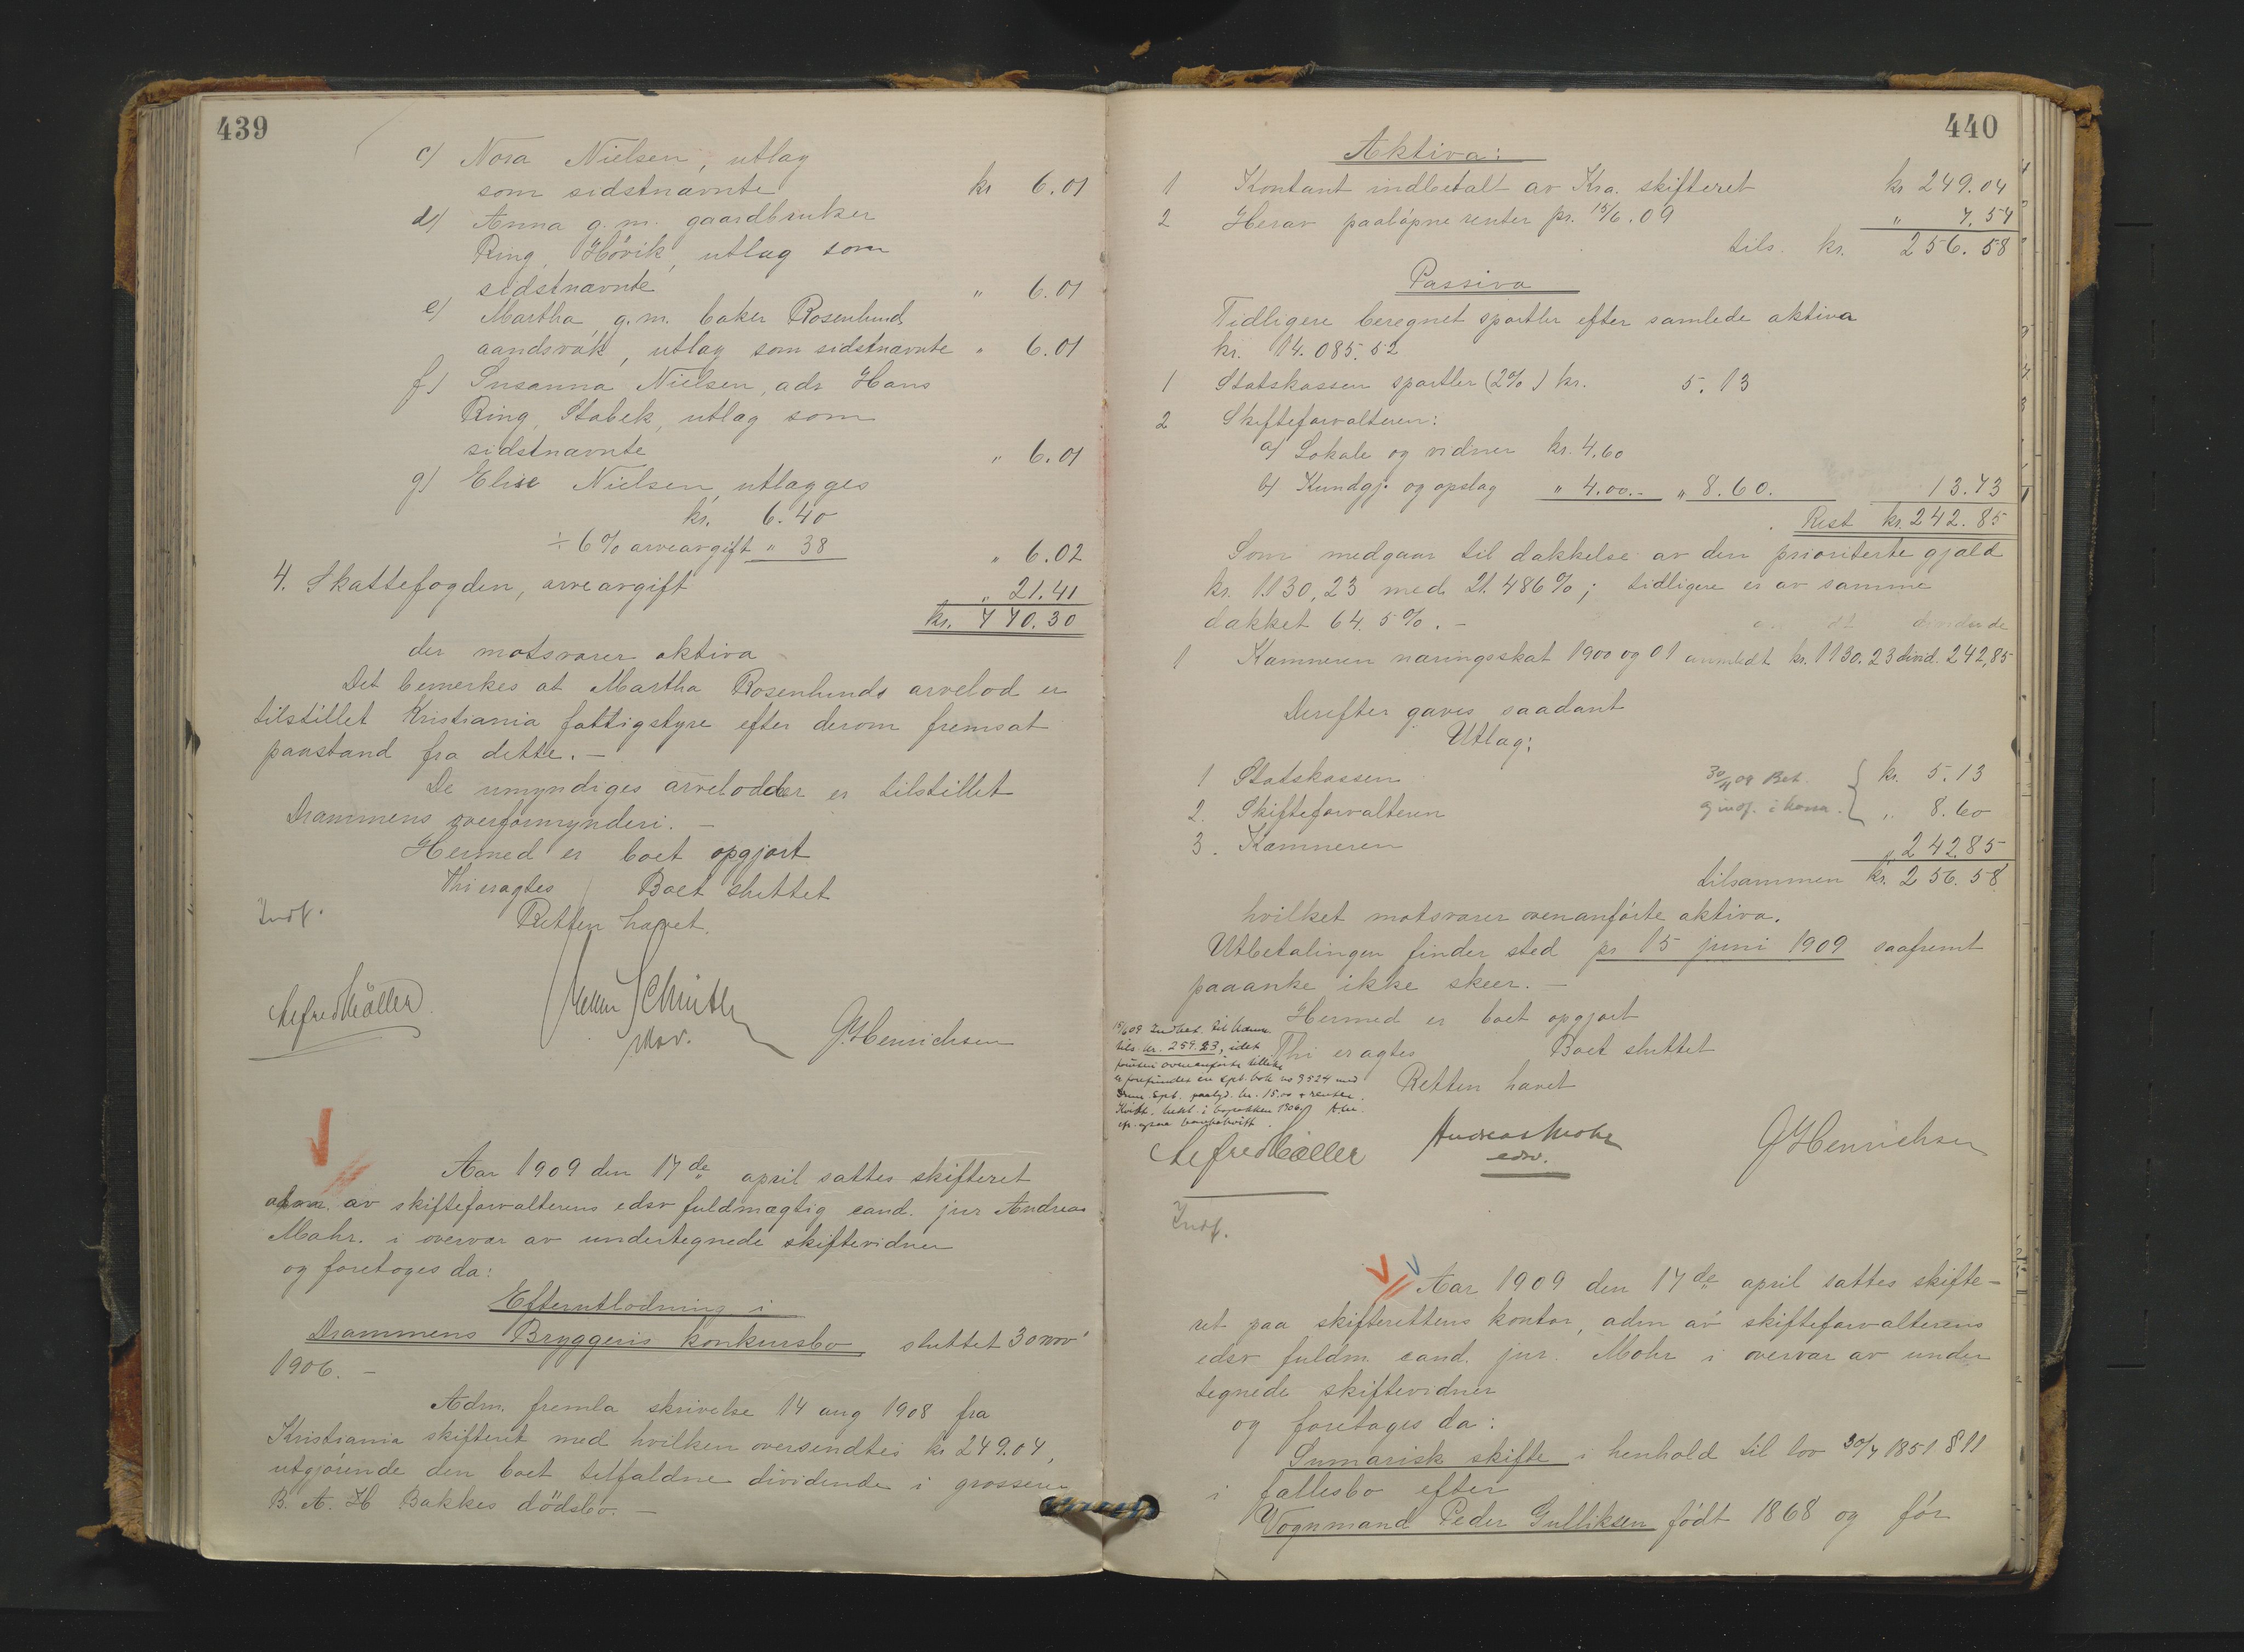 439
c) Nora Nielsen, utlag
som sidstnævnte kr 6.01
d) Anna g. m. gaardbruker
Ring, Hövik, utlag som
sidstnævnte " 6.01
e) Martha, g. m. baker Rosenlund,
aandsvak, utlag som sidstnævnte " 6.01
f) Susanna Nielsen, adr Hans
Ring, Stabek, utlag som
sidstnævnte " 6.01
g) Elise Nielsen, utlægges
kr. 6.40
÷ 6% arveavgift " 38 " 6.02
4. Skattefogden, arveavgift " 21.41
kr. 770.30
der motsvarer aktiva
Det bemerkes at Martha Rosenlunds arvelod er
tilstillet Kristiania fattigstyre efter derom fremsat
paastand fra dette. –
De umyndiges arvelodder er tilstillet
Drammens overformynderi. –
Hermed er boet opgjort
Thi eragtes Boet sluttet
Indf. Retten hævet.
Alfred Möller
G. Henrichsen
Aar 1909 den 17de april sattes skifteret
adm. av skifteforvalterens edsv fuldmægtig cand. jur Andreas
Mohr. i overvær av undertegnede skiftevidner
og foretoges da:
Efterutlodning i
Drammens Bryggeris konkursbo sluttet 30 nov
1906. –
Adm. fremla skrivelse 14 aug 1908 fra
Kristiania skifteret med hvilken oversendtes kr 249.04,
utgjörende den boet tilfaldne dividende i grosserer
B. A. H Bakkes dödsbo. –
440
Aktiva:
1 Kontant indbetalt av Kra. skifteret kr 249.04
2 Herav paalöpne renter pr. 15/6.09 " 7.54
tils. kr. 256.58
Passiva
Tidligere beregnet sportler efter samlede aktiva
kr. 14.085.52
1 Statskassen sportler (2%) kr. 5.13
2 Skifteforvalteren:
a) Lokale og vidner kr. 4.60
b) Kundgj. og opslag " 4.00.- " 8.60. 13.73
Rest kr. 242.85
Som medgaar til dækkelse av den prioriterte gjæld
kr. 1130,23 med 21.486%; tidligere er av samme
dækket 64.5%. –
1 Kæmneren næringsskat 1900 og 01 anmeldt kr. 1130.23 divid. 242,85
Derefter gaves saadant
Utlæg:
1 Statskassen 30/4 09 Bet. kr. 5.13
2. Skifteforvalteren g indf. i kassa. " 8.60
3. Kæmneren " 242.85
tilsammen kr. 256.58
hvilket motsvarer ovenanförte aktiva.
Utbetalingen finder sted pr 15 juni 1909 saafremt
paaanke ikke skeer. –
Hermed er boet opgjort
Thi eragtes Boet sluttet
Retten hævet
15/6 09 Indbet. til Kæmn.
tils. kr. 259.23, idet
foruten ovenanförte tillike
er forefundet en spb. bok no 9524 med
Dram. Spb. paalyd. kr. 15,00 + renter.
Alfred Möller
Andreas Mohr
edsv.
G Henrichsen
Indf.
Aar 1909 den 17de april sattes skifte-
ret paa skifterettens kontor, adm av skifteforvalterens
edsv fuldm. cand. jur. Mohr i overvær av under
tegnede skiftevidner
og foretoges da:
Sumarisk skifte i henhold til lov 30/7 1851 § 11
i fællesbo efter
Vognmand Peder Gulliksen födt 1868 og för